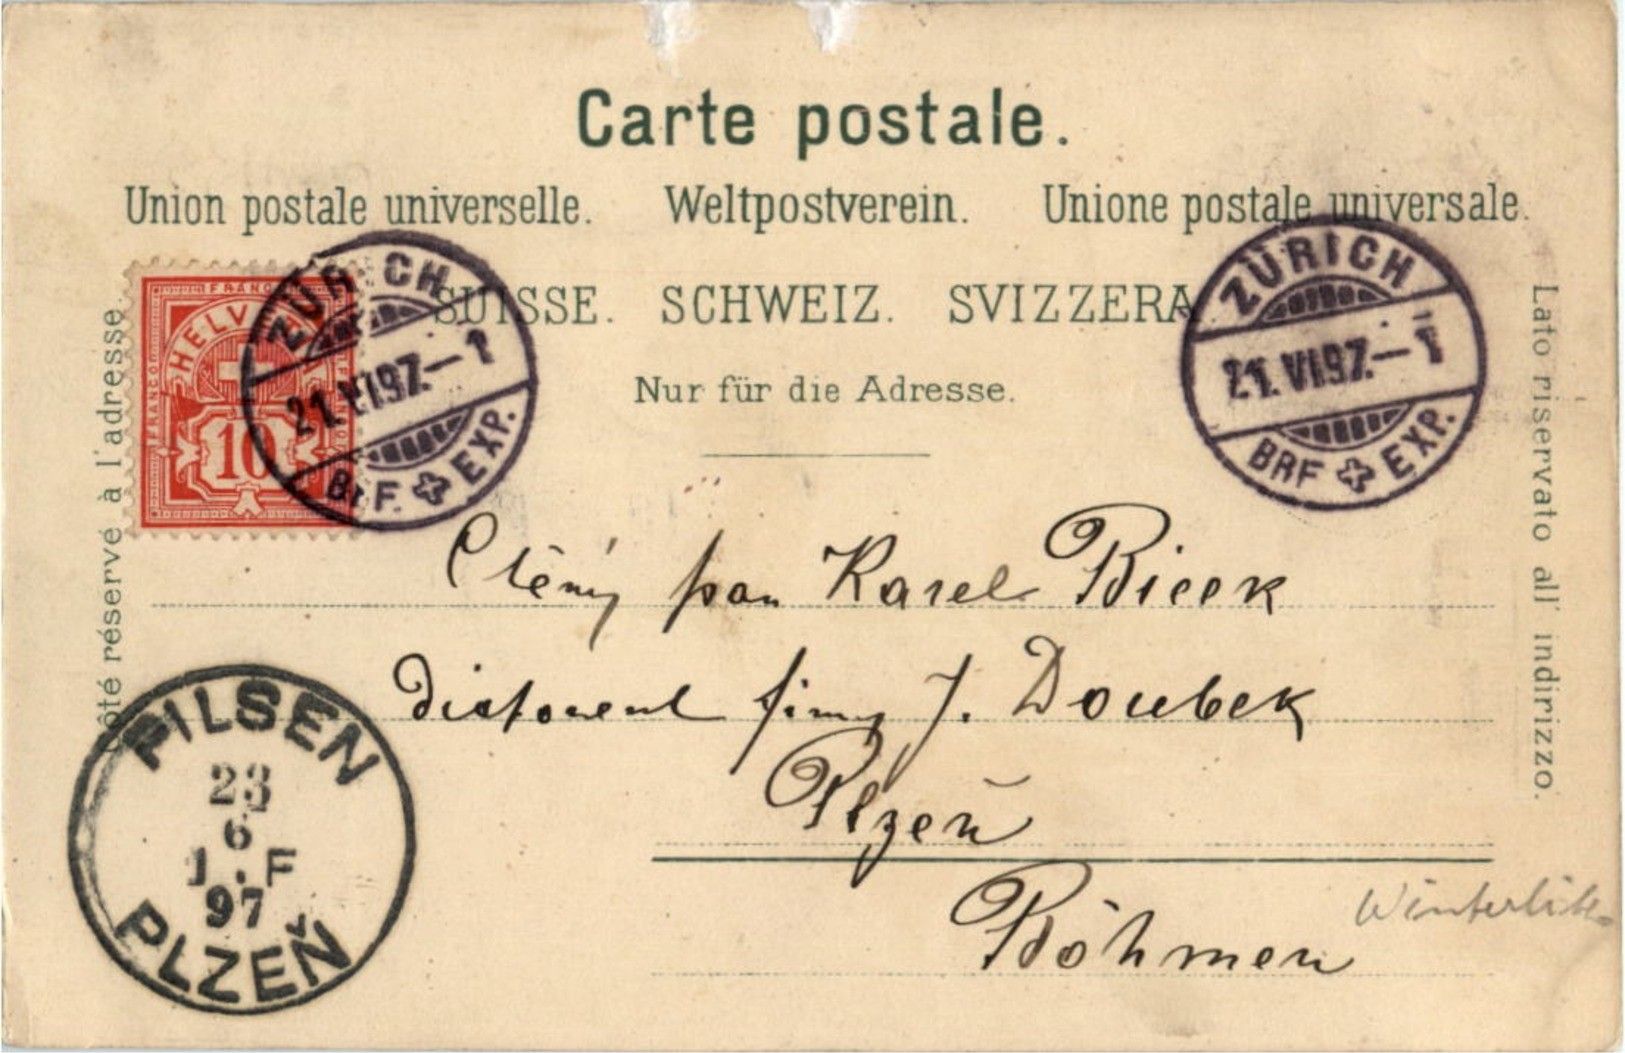 Carte postale.
Union postale universelle. Weltpostverein. Unione postale universale.
SUISSE. SCHWEIZ. SVIZZERA.
Nur für die Adresse.
Côté réservé à l'adresse.
Lato riservato all' indirizzo.
FRANCO
HELV
FRANCO
10
ZÜRICH
21.VI.97.–1
BRF. EXP.
ZÜRICH
21.VI.97.–1
BRF EXP.
Ctěný pan Karel
disponent firmy J. Doubek
Plzeň
Böhmen
PILSEN
23
6
1.F
97
PLZEŇ